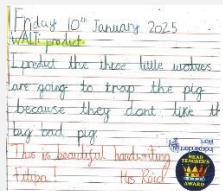 Friday 10th January 2025
WALT: predict
I predict the three little wolves
are going to trap the pig
because they dont like th
big bad pig
This is beautiful handwriting
Mrs Reid
HEAD
TEACHER'S
AWARD